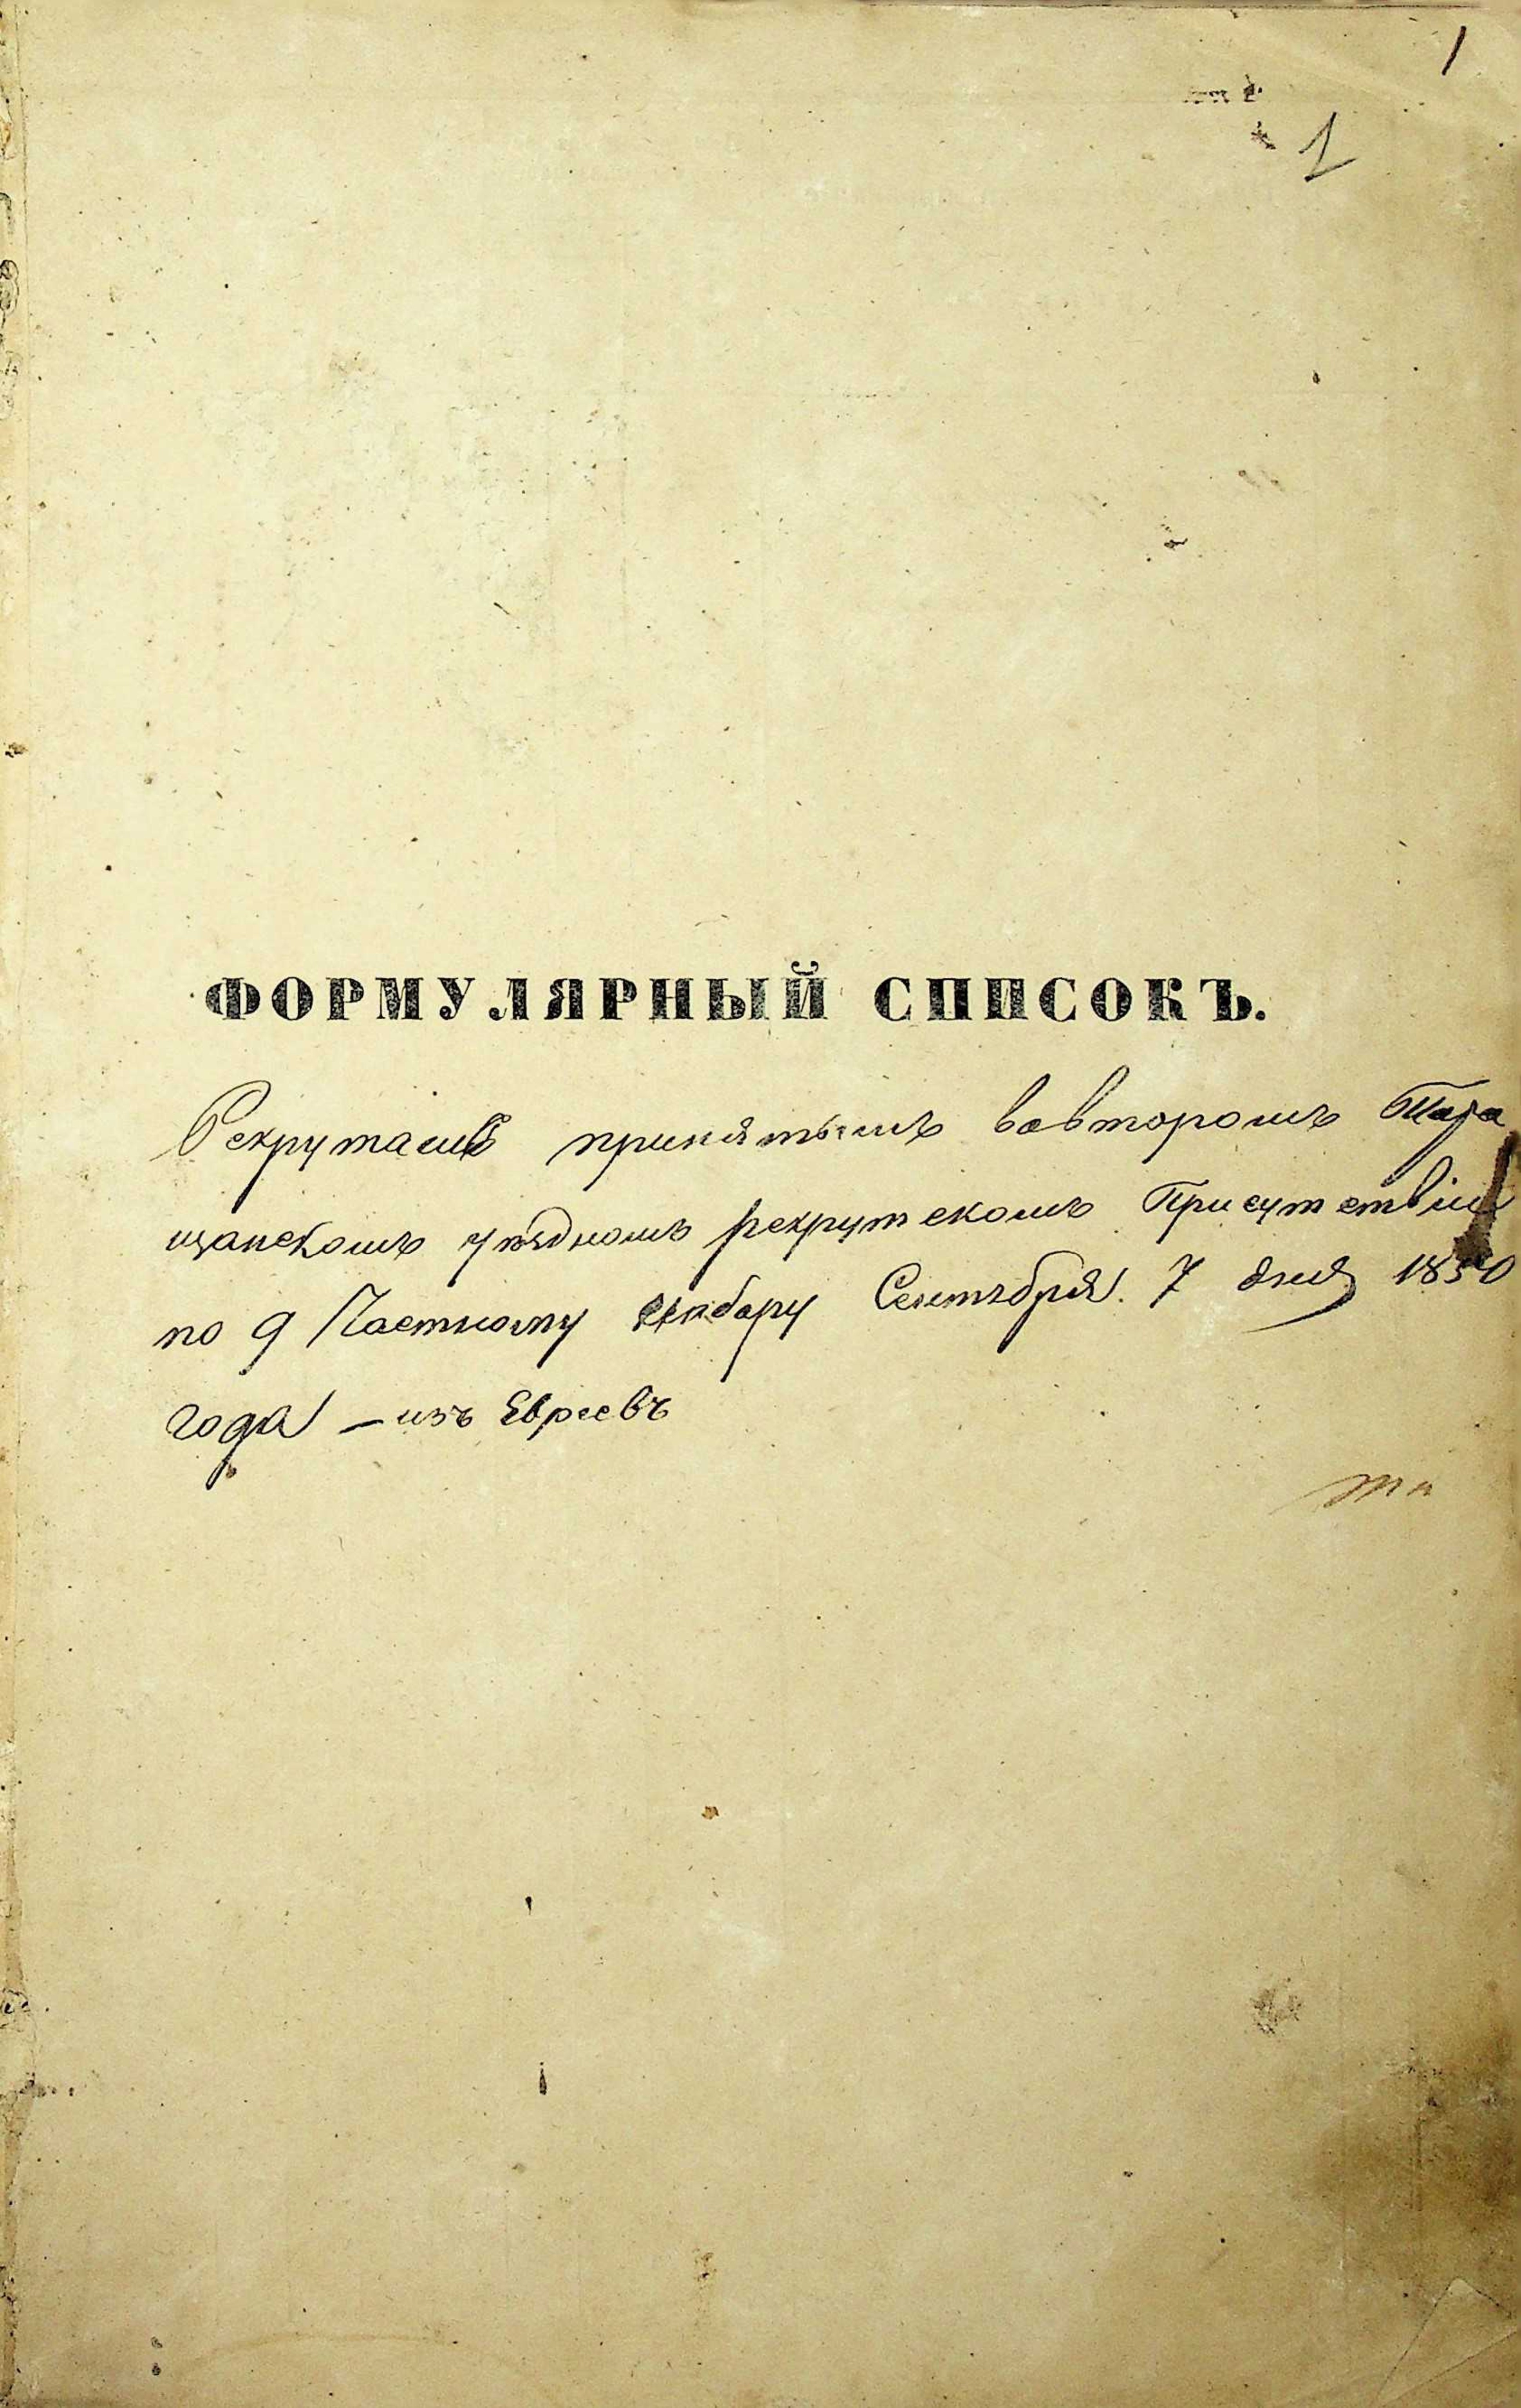 1
1
ФОРМУЛЯРНЫЙ СПИСОКЪ.
Рекрутамъ принятымъ вовторомъ Тара
щанскомъ уѣздномъ рекрутскомъ Присутствіи
по 9 Частному Набору Сентября 7 дня 1850
года – изъ Евреевъ